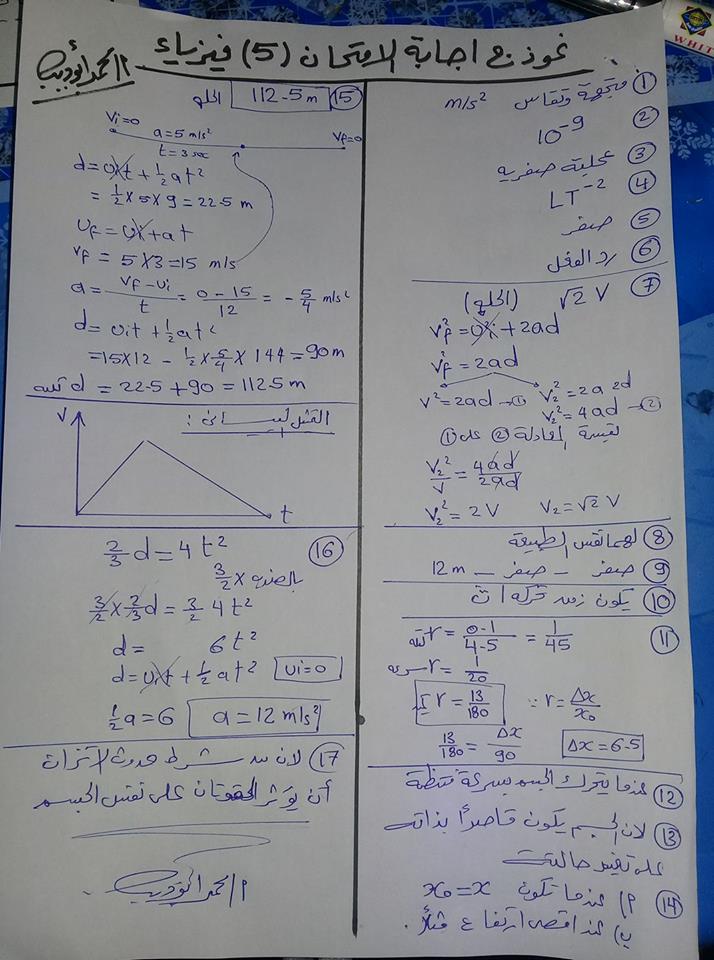 نموذج اجابة الامتحان (5) فيزياء
① متجهة وتقاس m/s²
② 10⁻⁹
③ عجلته صفريه
④ LT⁻²
⑤ صفر
⑥ رد الفعل
⑦ √2 V (الحل)
Vf² = Vi² + 2ad
Vf² = 2ad
V² = 2ad → ①
V₂² = 2a 2d
V₂² = 4ad → ②
بقسمة المعادلة ② على ①
V₂²/V = 4ad/2ad
V₂² = 2V V₂ = √2 V
⑧ لهما نفس الطبيعة
⑨ صفر – صفر – 12m
⑩ يكون زمن حركه
⑪ r كتلة = 0.1/4.5 = 1/45
r سرعه = 1/20
r = 13/180 ∵ r = Δx/x₀
13/180 = Δx/90 Δx = 6.5
⑫ عندما يتحرك الجسم بسرعة منتظمة
⑬ لان الجسم يكون قاصراً بذاته
على تغيير حالته
⑭ ا) عندما تكون x₀ = x
ب) عند اقصى ارتفاع مثلاً.
⑮ 112.5 m الحل
Vi=0 a=5 m/s² t=3 sec Vf=0
d = Vit + ½at²
= ½×5×9 = 22.5 m
Vf = Vi + at
Vf = 5×3 = 15 m/s
a = Vf−Vi/t = 0−15/12 = −5/4 m/s²
d = Vit + ½at²
= 15×12 − ½×5/4×144 = 90m
d = 22.5 + 90 = 112.5 m
التمثيل البيانى :
V
t
⑯ 2/3 d = 4t²
بالضرب × 3/2
3/2 × 2/3 d = 3/2 4t²
d = 6t²
d = Vit + ½at² Vi=0
½a = 6 a = 12 m/s²
⑰ لان من شرط حدوث الاتزان
أن يؤثر القوتان على نفس الجسم
WHIT